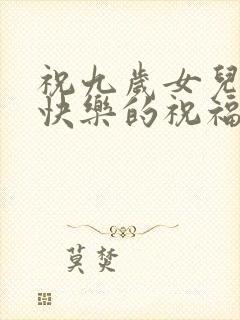 祝九歲女兒
快樂的祝福
莫焚